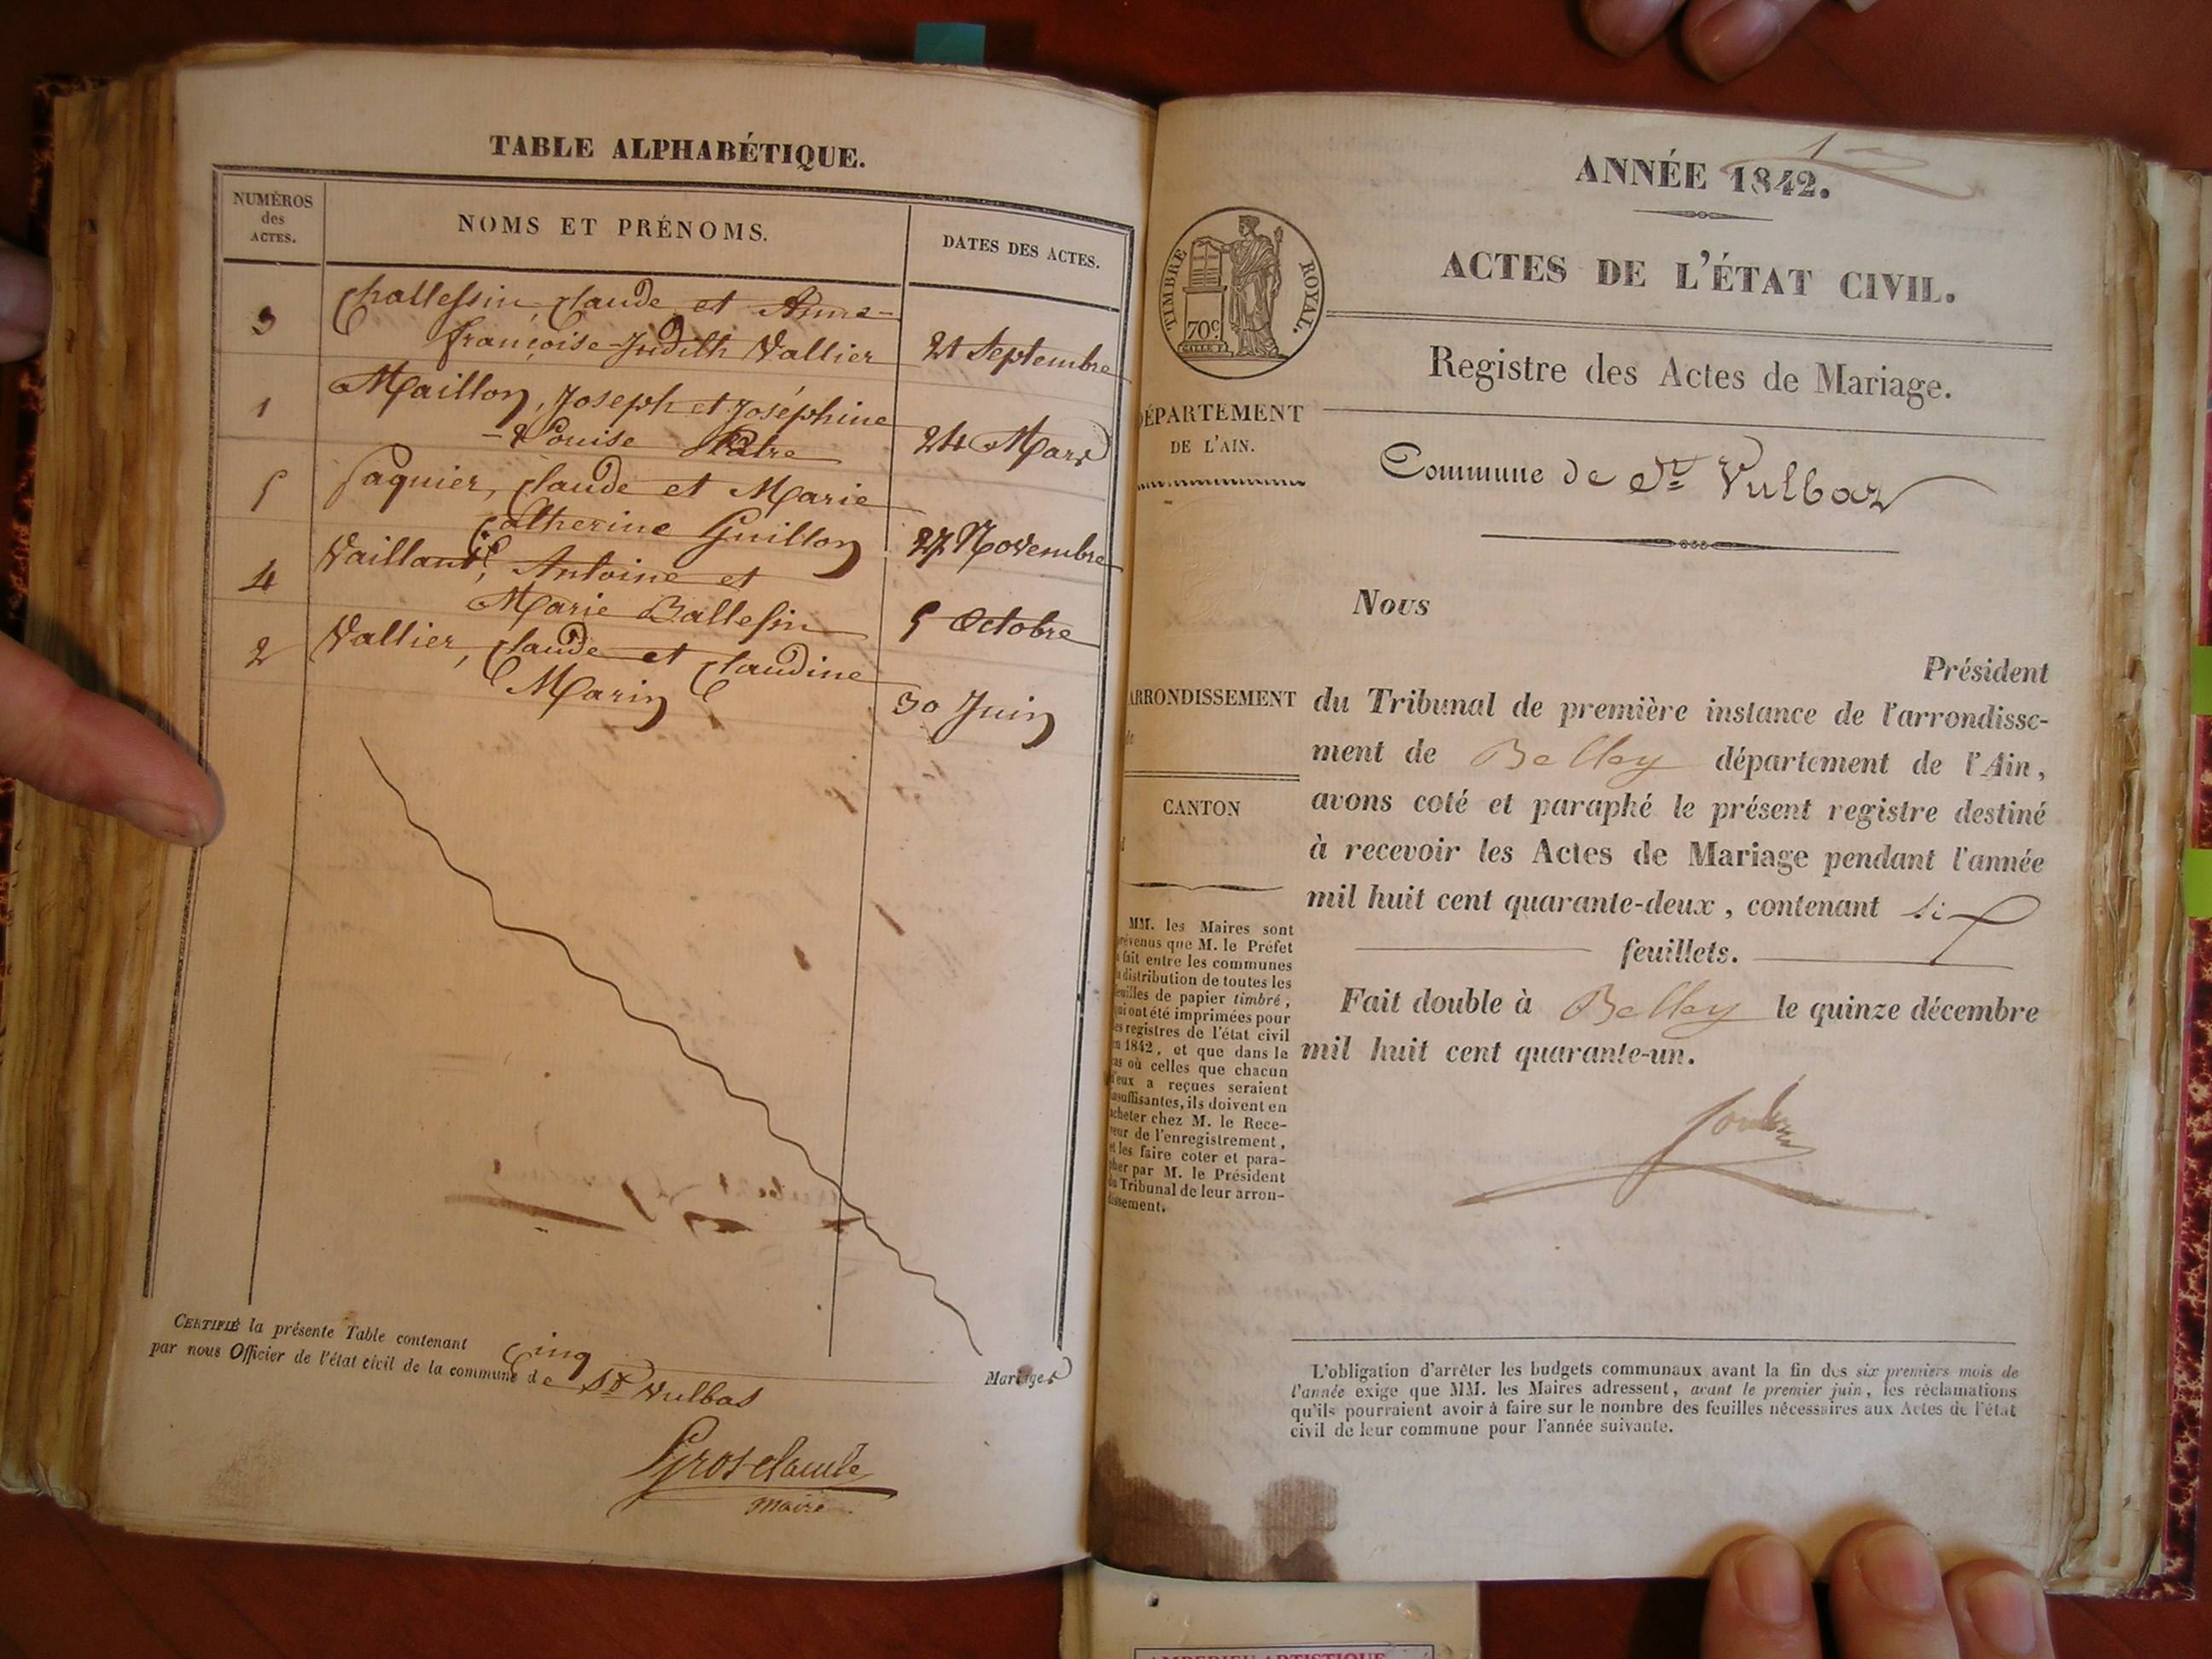 TABLE ALPHABÉTIQUE.
NUMÉROS
des
ACTES.
NOMS ET PRÉNOMS.
DATES DES ACTES.
3 Challessin, Claude et Anne-
françoise-Judith Vallier 21 Septembre
1 Maillon, Joseph et Joséphine
-Louise 24 Mars
5 Paquier, Claude et Marie
Catherine Guillon 27 Novembre
4 Vaillant, Antoine et
Marie Ballessin 5 Octobre
2 Vallier, Claude et Claudine
Marin 30 Juin
CERTIFIÉ la présente Table contenant Cinq Mariages
par nous Officier de l'état civil de la commune de St Vulbas
Grosclaude
maire
1
ANNÉE 1842.
TIMBRE ROYAL.
70c
ACTES DE L'ÉTAT CIVIL.
Registre des Actes de Mariage.
DÉPARTEMENT
DE L'AIN.
Commune de St Vulbaz
Nous
Président
ARRONDISSEMENT
du Tribunal de première instance de l'arrondisse-
ment de Belley département de l'Ain,
avons coté et paraphé le présent registre destiné
à recevoir les Actes de Mariage pendant l'année
mil huit cent quarante-deux, contenant six
feuillets.
Fait double à Belley le quinze décembre
mil huit cent quarante-un.
CANTON
MM. les Maires sont
prévenus que M. le Préfet
a fait entre les communes
la distribution de toutes les
feuilles de papier timbré,
qui ont été imprimées pour
les registres de l'état civil
en 1842, et que dans le
cas où celles que chacun
d'eux a reçues seraient
insuffisantes, ils doivent en
acheter chez M. le Rece-
veur de l'enregistrement,
et les faire coter et para-
pher par M. le Président
du Tribunal de leur arron-
dissement.
L'obligation d'arrêter les budgets communaux avant la fin des six premiers mois de
l'année exige que MM. les Maires adressent, avant le premier juin, les réclamations
qu'ils pourraient avoir à faire sur le nombre des feuilles nécessaires aux Actes de l'état
civil de leur commune pour l'année suivante.
AMBERIEU ARTISTIQUE